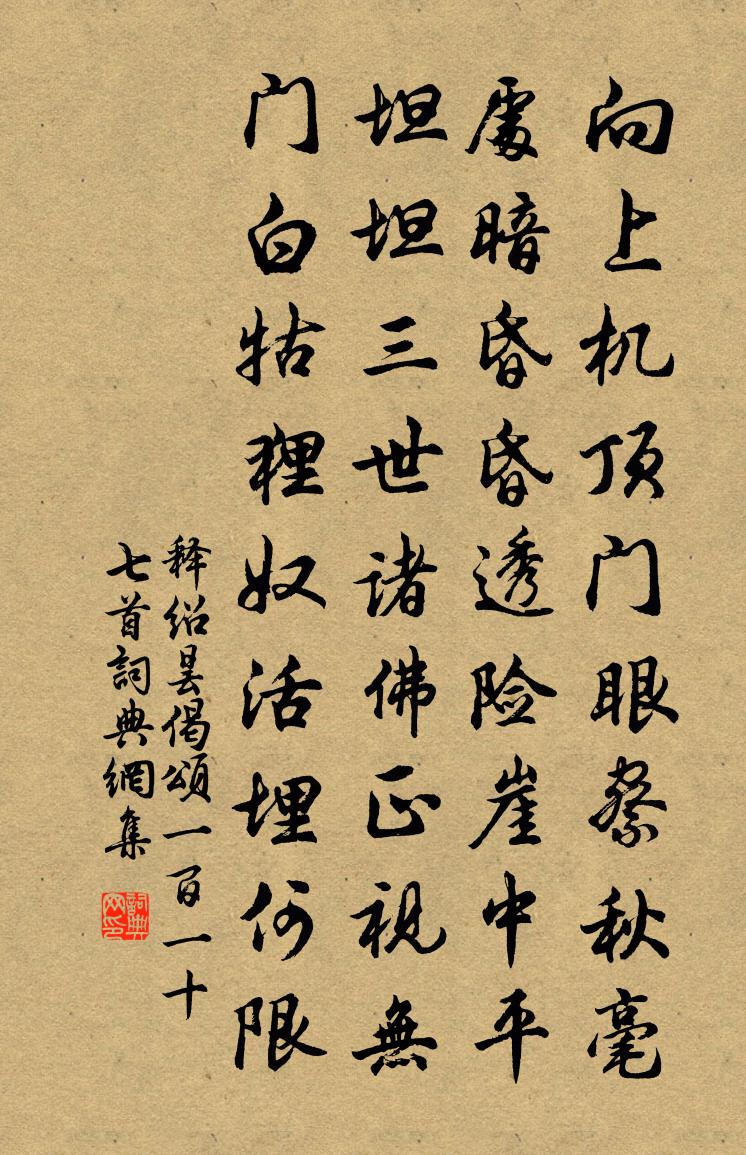 向上机顶门眼察秋毫
處暗昏昏透险崖中平
坦坦三世诸佛正视無
门白牯狸奴活埋何限
释绍昙偈頌一百一十
七首詞典網集
詞典网印